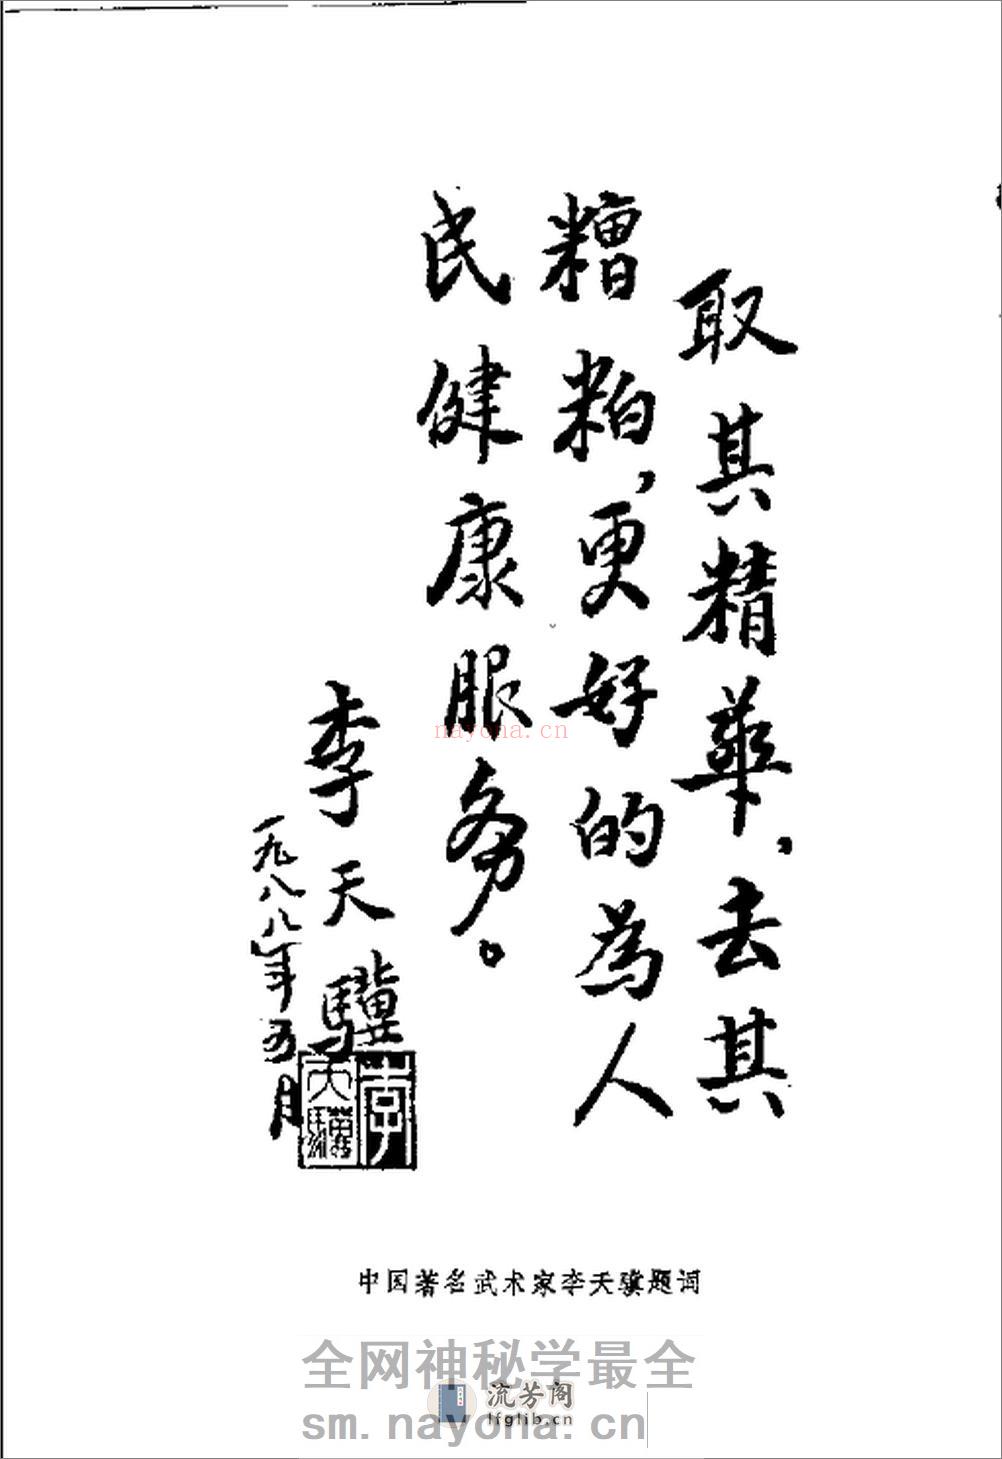 取其精華,去其
糟粕,更好的為人
民健康服务。
李天驥
一九八八年五月
李天驥
中国著名武术家李天骥题词
nayona.cn
全网神秘学最全
流芳阁
lfglib.cn
sm.nayona.cn